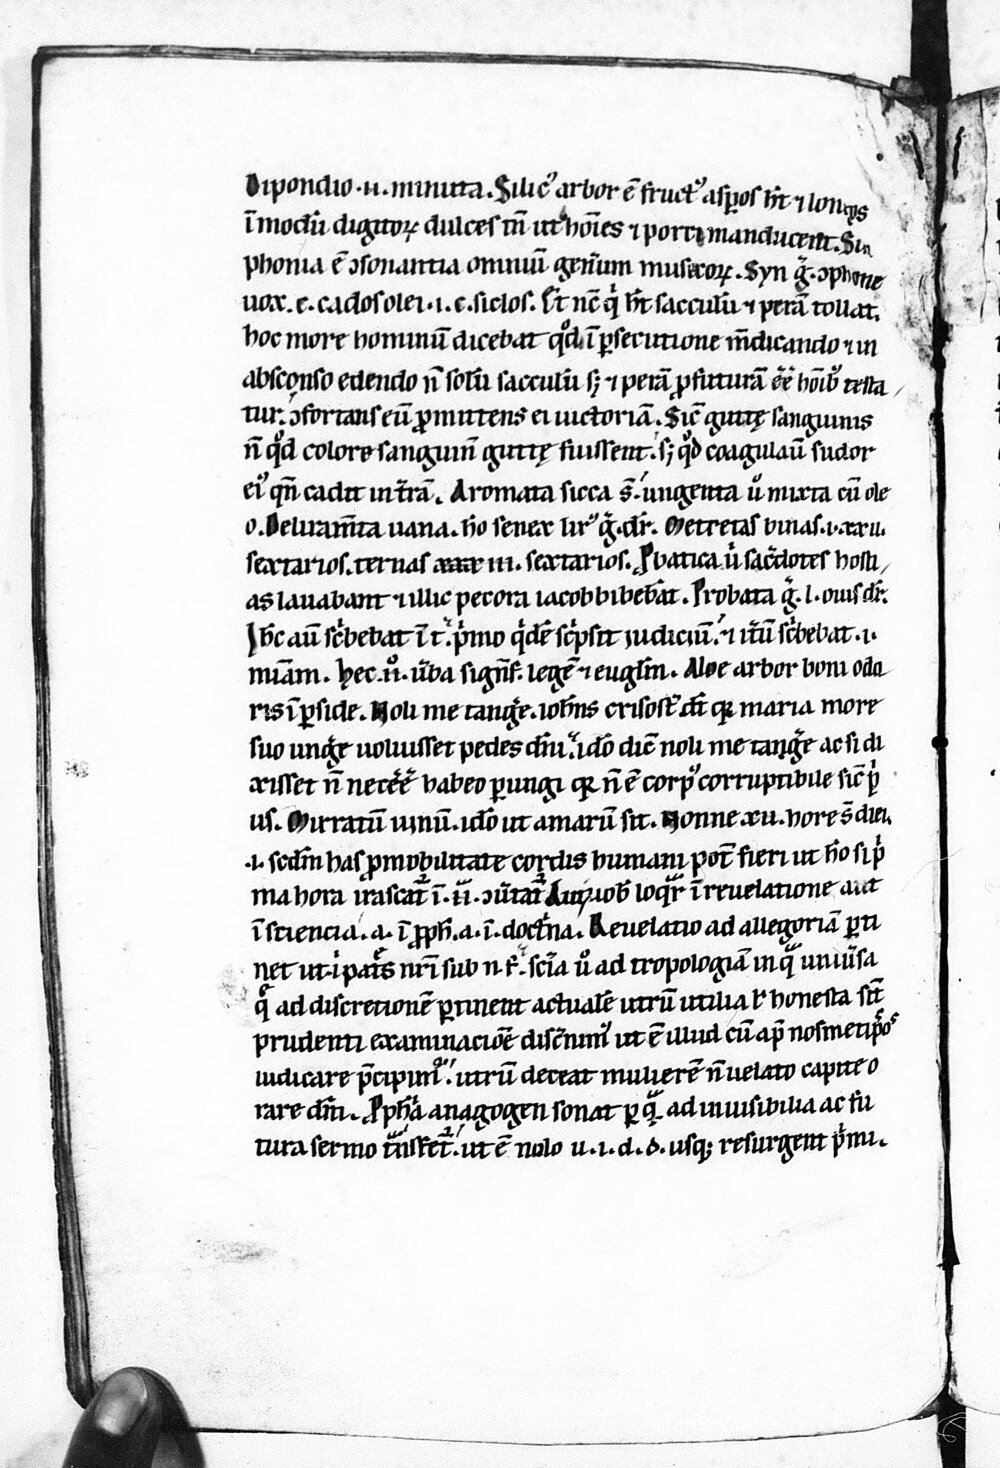 Dipondio .ii. minuta. Silicꝰ arbor ē fructꝰ asꝑos hꝫt ⁊ longos
ī modū digitoꝝ dulces tn̄ ut hoīes ⁊ porci manducent. Sin
phonia ē ↄsonantia omniū gen̄um musicoꝝ. Syn g̊. ↄ phone
uox. e. cados olei .i. e. siclos. Et nc̄ qⁱ hꝫt sacculū ⁊ perā tollat.
hoc more hominū dicebat qd̊ ī ꝑsecutione m̄dicando ⁊ in
absconso edendo n̄ solū sacculū sꝫ ⁊ perā ꝓfuturā eē᷎ hoībꝰ testa
tur. ↄfortans eū ꝓmittens ei uictoriā. Sic̄ guttę sanguinis
n̄ qd̊ colore sanguin̄ guttę fuissent. sꝫ qd̊ coagulaū sudor
eiꝰ qn̄ cadit in t̄rā. Aromata sicca s̄. ungenta ů mixta cū ole
o. Deliram̄ta uana. h̊o senex lirꝰ g̊. dr̄. Metretas binas .i. xxii.
sextarios. ternas xxxiii. sextarios. Ꝓbatica u̇ sac̄dotes hosti
as lauabant ⁊ illic pecora iacob bibeb̄at. Probata g̊. l. ouis dr̄.
Ihc̄ aū sc̄bebat ī t̄. pⁱmo qⁱde᷎ sc̄psit iudiciū. ⁊ itū sc̄bebat .i.
miām. hec .n̊. ūba signf̄. legē ⁊ euglīm. Aloe arbor boni odo
ris ī ꝑside. Noli me tang̊e. ioħns crisost̄ dt̄ qꝛ maria more
suo ung̊e uoluisset pedes dn̄i. iđo dic̄ noli me tang̊e ac si di
xisset n̄ necēē habeo ꝑungi qꝛ n̄ ē corpꝰ corruptibile sic̄ pⁱ
us. Mirratū uinū. iđo ut amarū sit. Nonne xii. hore s̄ diei.
.i. scdm̄ has ꝓ mobilitate cordis humani pot̄ fieri ut h̊o si pⁱ
ma hora irascat̄ ī .ii. ↄūtat̄ uob̄ loqr̄ ī reuelatione aut
ī sciencia. a. ī ꝓph̄. a. ī. doctⁱna. Reuelatio ad allegoriā ꝑti
net ut .i. pat̄s nr̄i sub n. f̄. scīa ů ad tropologiā in qᵃ uniūsa
q̄ ad discretionē ꝑtinent actualē utrū utilia ł honesta sīt
prudenti examinacioē disc̄nimꝰ ut ē illud cū apᵈ nosmetip̄os
iudicare p̄cipimꝰ. utrū deceat mulierē n̄ uelato capite o
rare dm̄. Ꝓph̄ā anagogen sonat ꝑ qᵃ ad inuisibilia ac fu
tura sermo tⁿsfert̄. ut ē nolo u. i. d. d. usqꝫ resurgent pⁱmi.